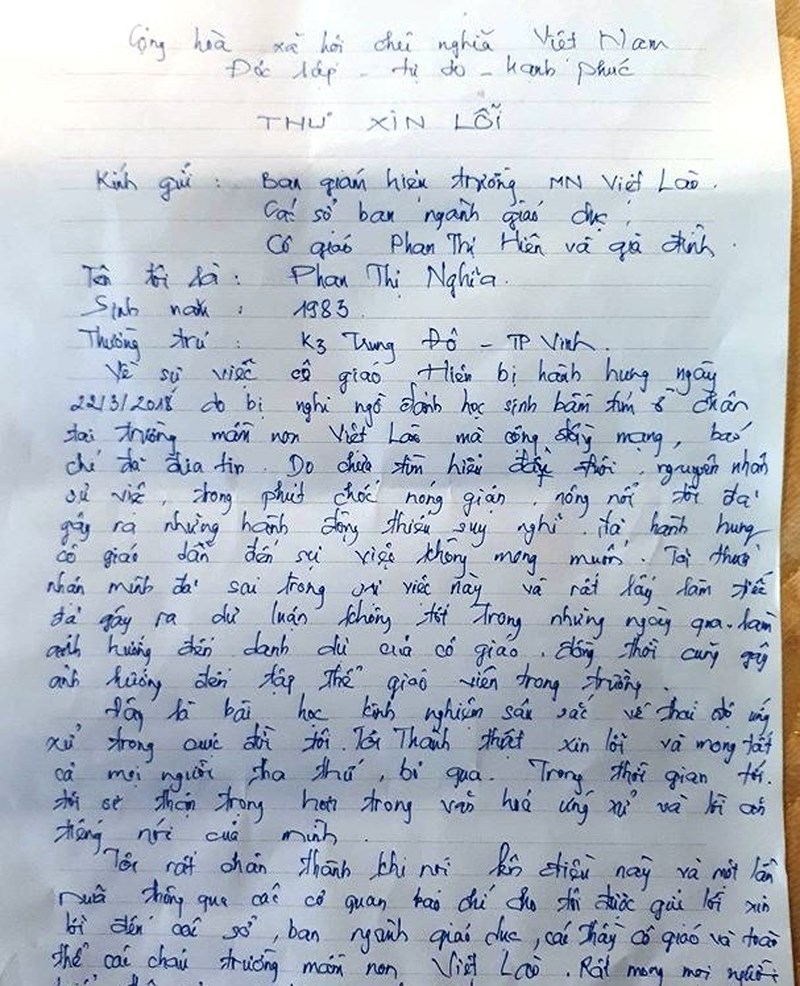 Cộng hoà xã hội chủ nghĩa Việt Nam
Độc lập - tự do - Hạnh phúc
THƯ XIN LỖI
Kính gửi : Ban giám hiệu trường MN Việt Lào.
Các sở ban ngành giáo dục,
Cô giáo Phan Thị Hiền và gia đình.
Tên tôi là : Phan Thị Nghĩa.
Sinh năm : 1983.
Thường trú : K3 Trung Đô - TP Vinh.
Về sự việc cô giáo Hiền bị hành hung ngày
22/3/2018 do bị nghi ngờ đánh học sinh bầm tím ở chân
tại trường mầm non Việt Lào mà cộng đồng mạng, báo
chí đã đưa tin. Do chưa tìm hiểu nguyên nhân
sự việc, trong phút chốc nóng giận, nông nổi tôi đã
gây ra những hành động thiếu suy nghĩ. đã hành hung
cô giáo dẫn đến sự việc không mong muốn. Tôi thừa
nhận mình đã sai trong sự việc này và rất lấy làm tiếc
đã gây ra dư luận không tốt trong những ngày qua. làm
ảnh hưởng đến danh dự của cô giáo. đồng thời cũng gây
ảnh hưởng đến tập thể giáo viên trong trường.
Đây là bài học kinh nghiệm sâu sắc về thái độ ứng
xử trong cuộc đời tôi. Tôi Thành thật xin lỗi và mong tất
cả mọi người tha thứ, bỏ qua. Trong thời gian tới.
tôi sẽ thận trọng hơn trong văn hoá ứng xử và lời ăn
tiếng nói của mình.
Tôi rất chân thành khi nói lên điều này và một lần
nữa thông qua các cơ quan báo chí cho tôi được gửi lời xin
lỗi đến các sở, ban ngành giáo dục, các thầy cô giáo và toàn
thể các cháu trường mầm non Việt Lào. Rất mong mọi người